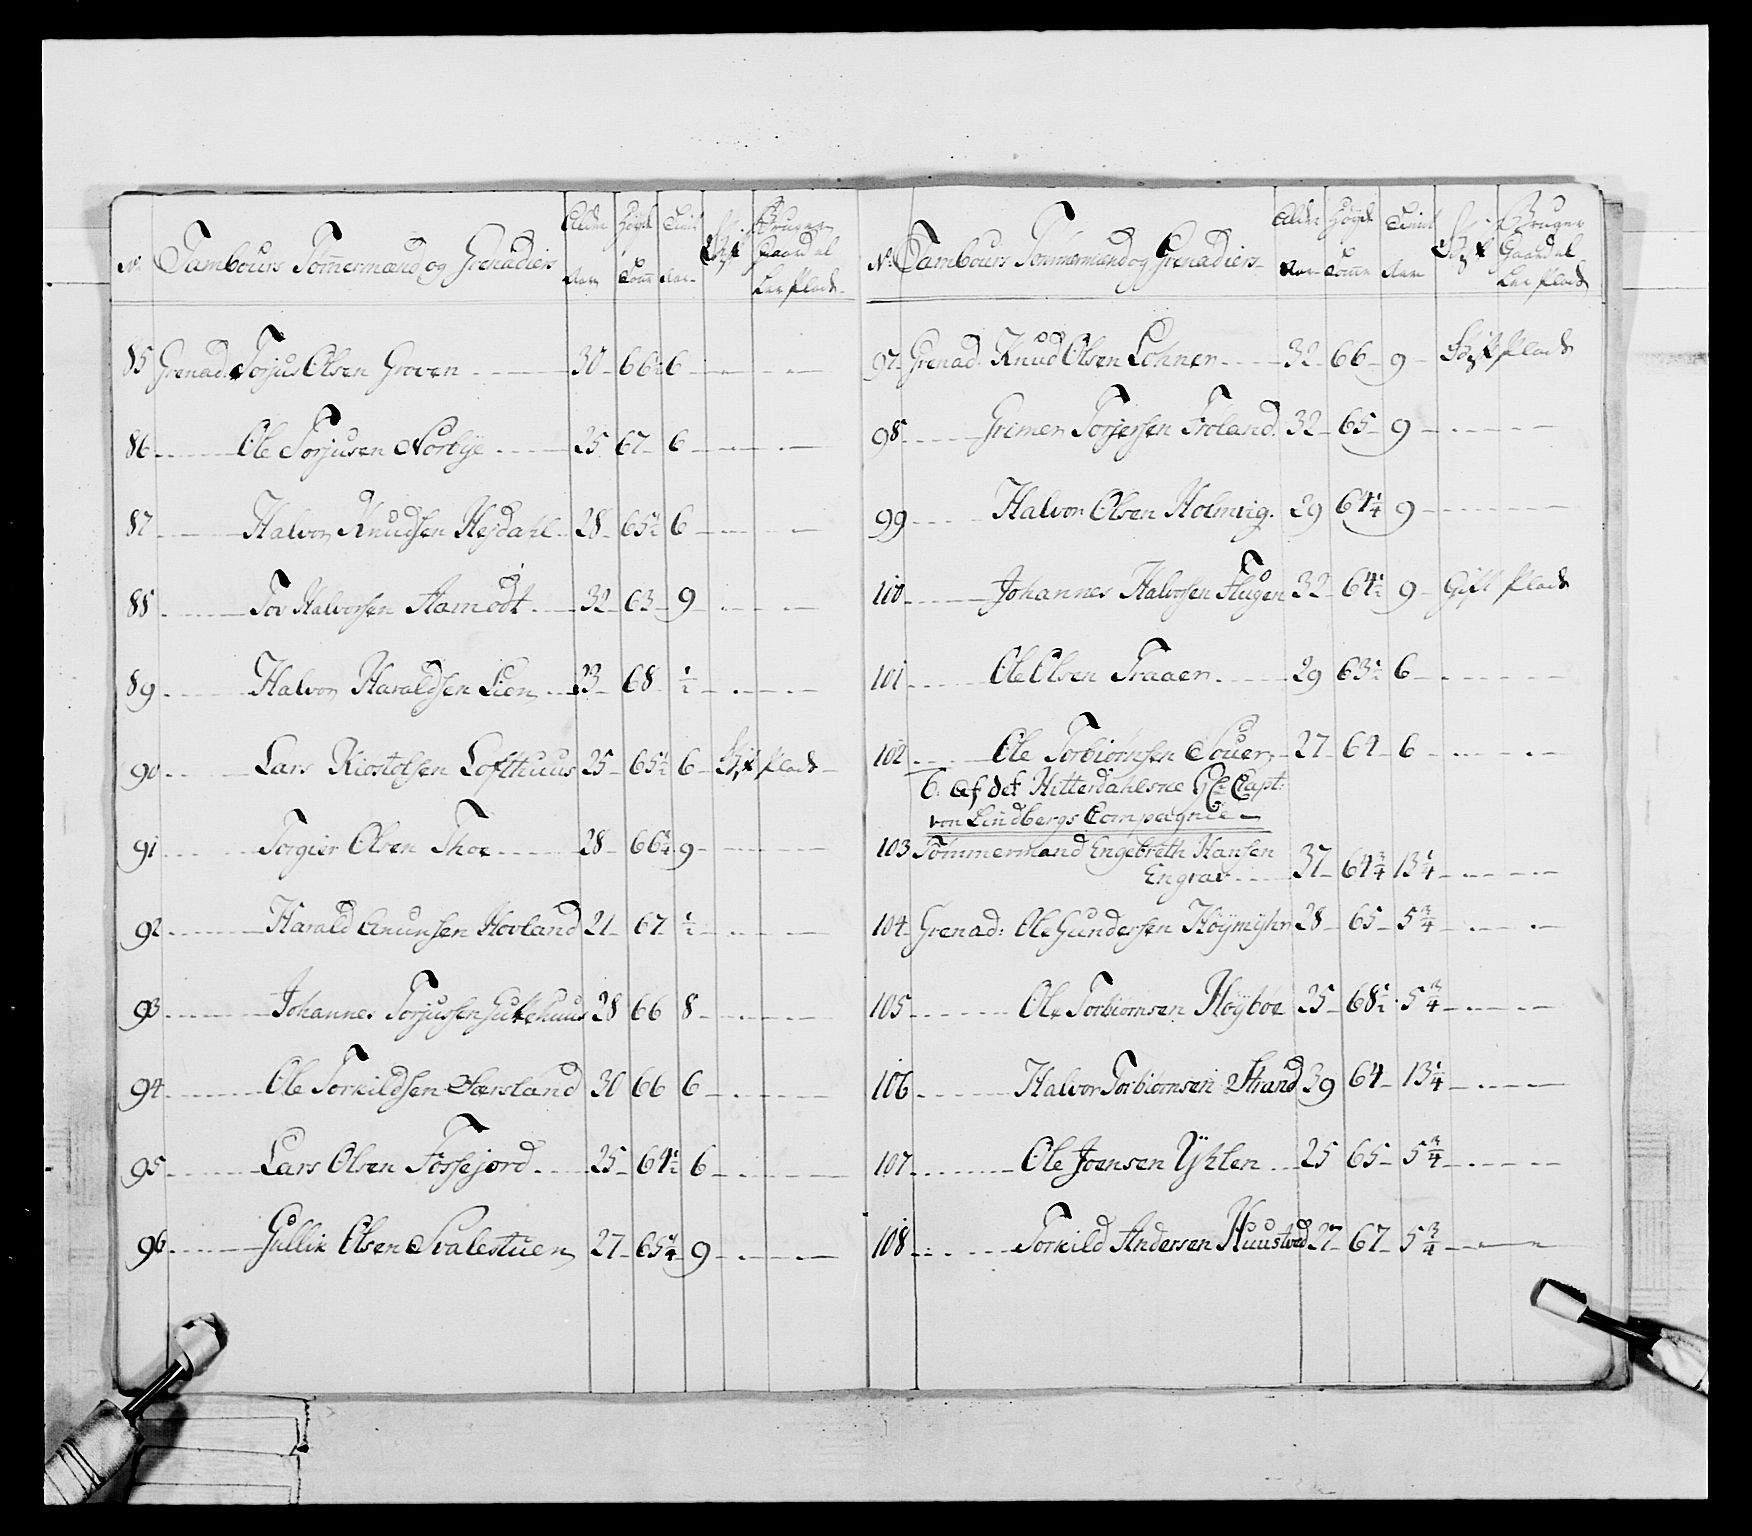 No Tambours Tommermænd og Grenadiers
Alder Aar
Høyde Tomme
Tient Aar
Gift
Bruger Gaard el Leer Plads
85 Grenad: Torjus Olsen Groven 30 66½ 6
86 Ole Torjusen Norbye 25 67 6
87 Halvor Knudsen Hejdahl 28 65½ 6
88 Tov Halvorsen Aamodt 32 63 9
89 Halvor Haraldsen Lien 23 68 ½
90 Lars Kiostolsen Lofthuus 25 65½ 6 Gift plads
91 Torgier Olsen Thoe 28 66½ 9
92 Harald Anunsen Hovland 21 67 ½
93 Johannes Torjussen Gukehuus 28 66 8
94 Ole Torkildsen Færsland 30 66 6
95 Lars Olsen Fossejord 25 64½ 6
96 Gullik Olsen Svalestuen 27 65¼ 9
No Tambours Tommermænd og Grenadiers
Alder Aar
Høyde Tomme
Tient Aar
Gift
Bruger Gaard el Leer Plads
97 Grenad: Knud Olsen Lohner 32 66 9 Gift plads
98 Grimer Torjersen Froland 32 65 9
99 Halvor Olsen Holmvig. 29 64¼ 9
100 Johannes Halvorsen Haugen 32 64½ 9 Gift plads
101 Ole Olsen Traaen 29 63½ 6
102 Ole Torbiornsen Souer 27 64 6
6. af det Hitterdahlsne Capt:
von Lindbergs Compagnie
103 Tømmermand Engebreth Hansen
Engrav 37 64¾ 13¼
104 Grenad: Ole Gundersen Høymyhr 28 65 5¾
105 Ole Torbiornsen Høyboe 25 68½ 5¾
106 Halvor Torbiornsen Strand 39 64 13¼
107 Ole Joensen Yhlen 25 65 5¾
108 Torkild Andersen Huustved 27 67 5¾